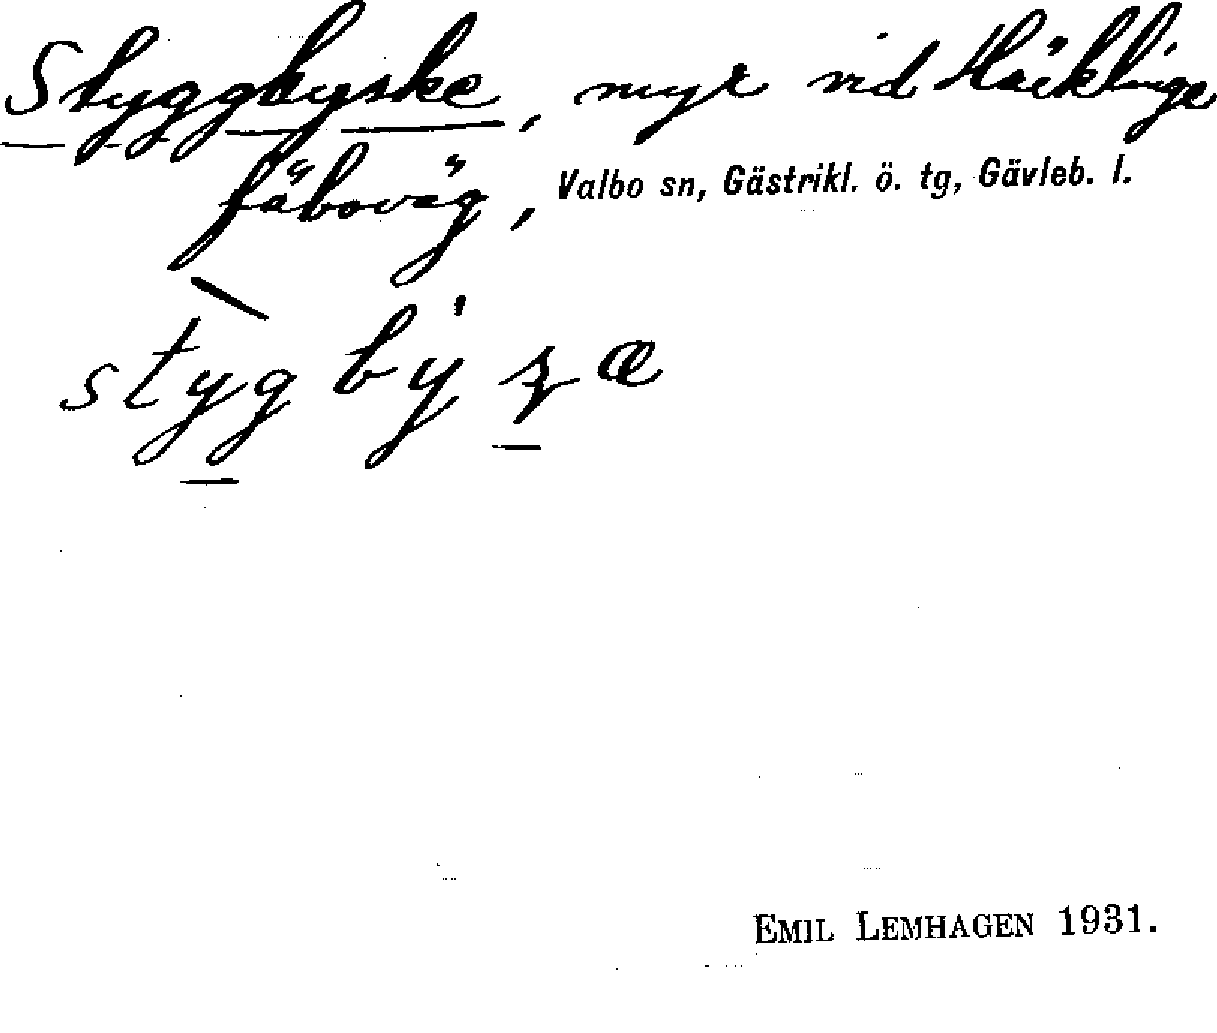 Styggbyske, myr vid Häcklinge
fäboväg, Valbo sn, Gästrikl. ö. tg, Gävleb. l.
EMIL LEMHAGEN 1931.